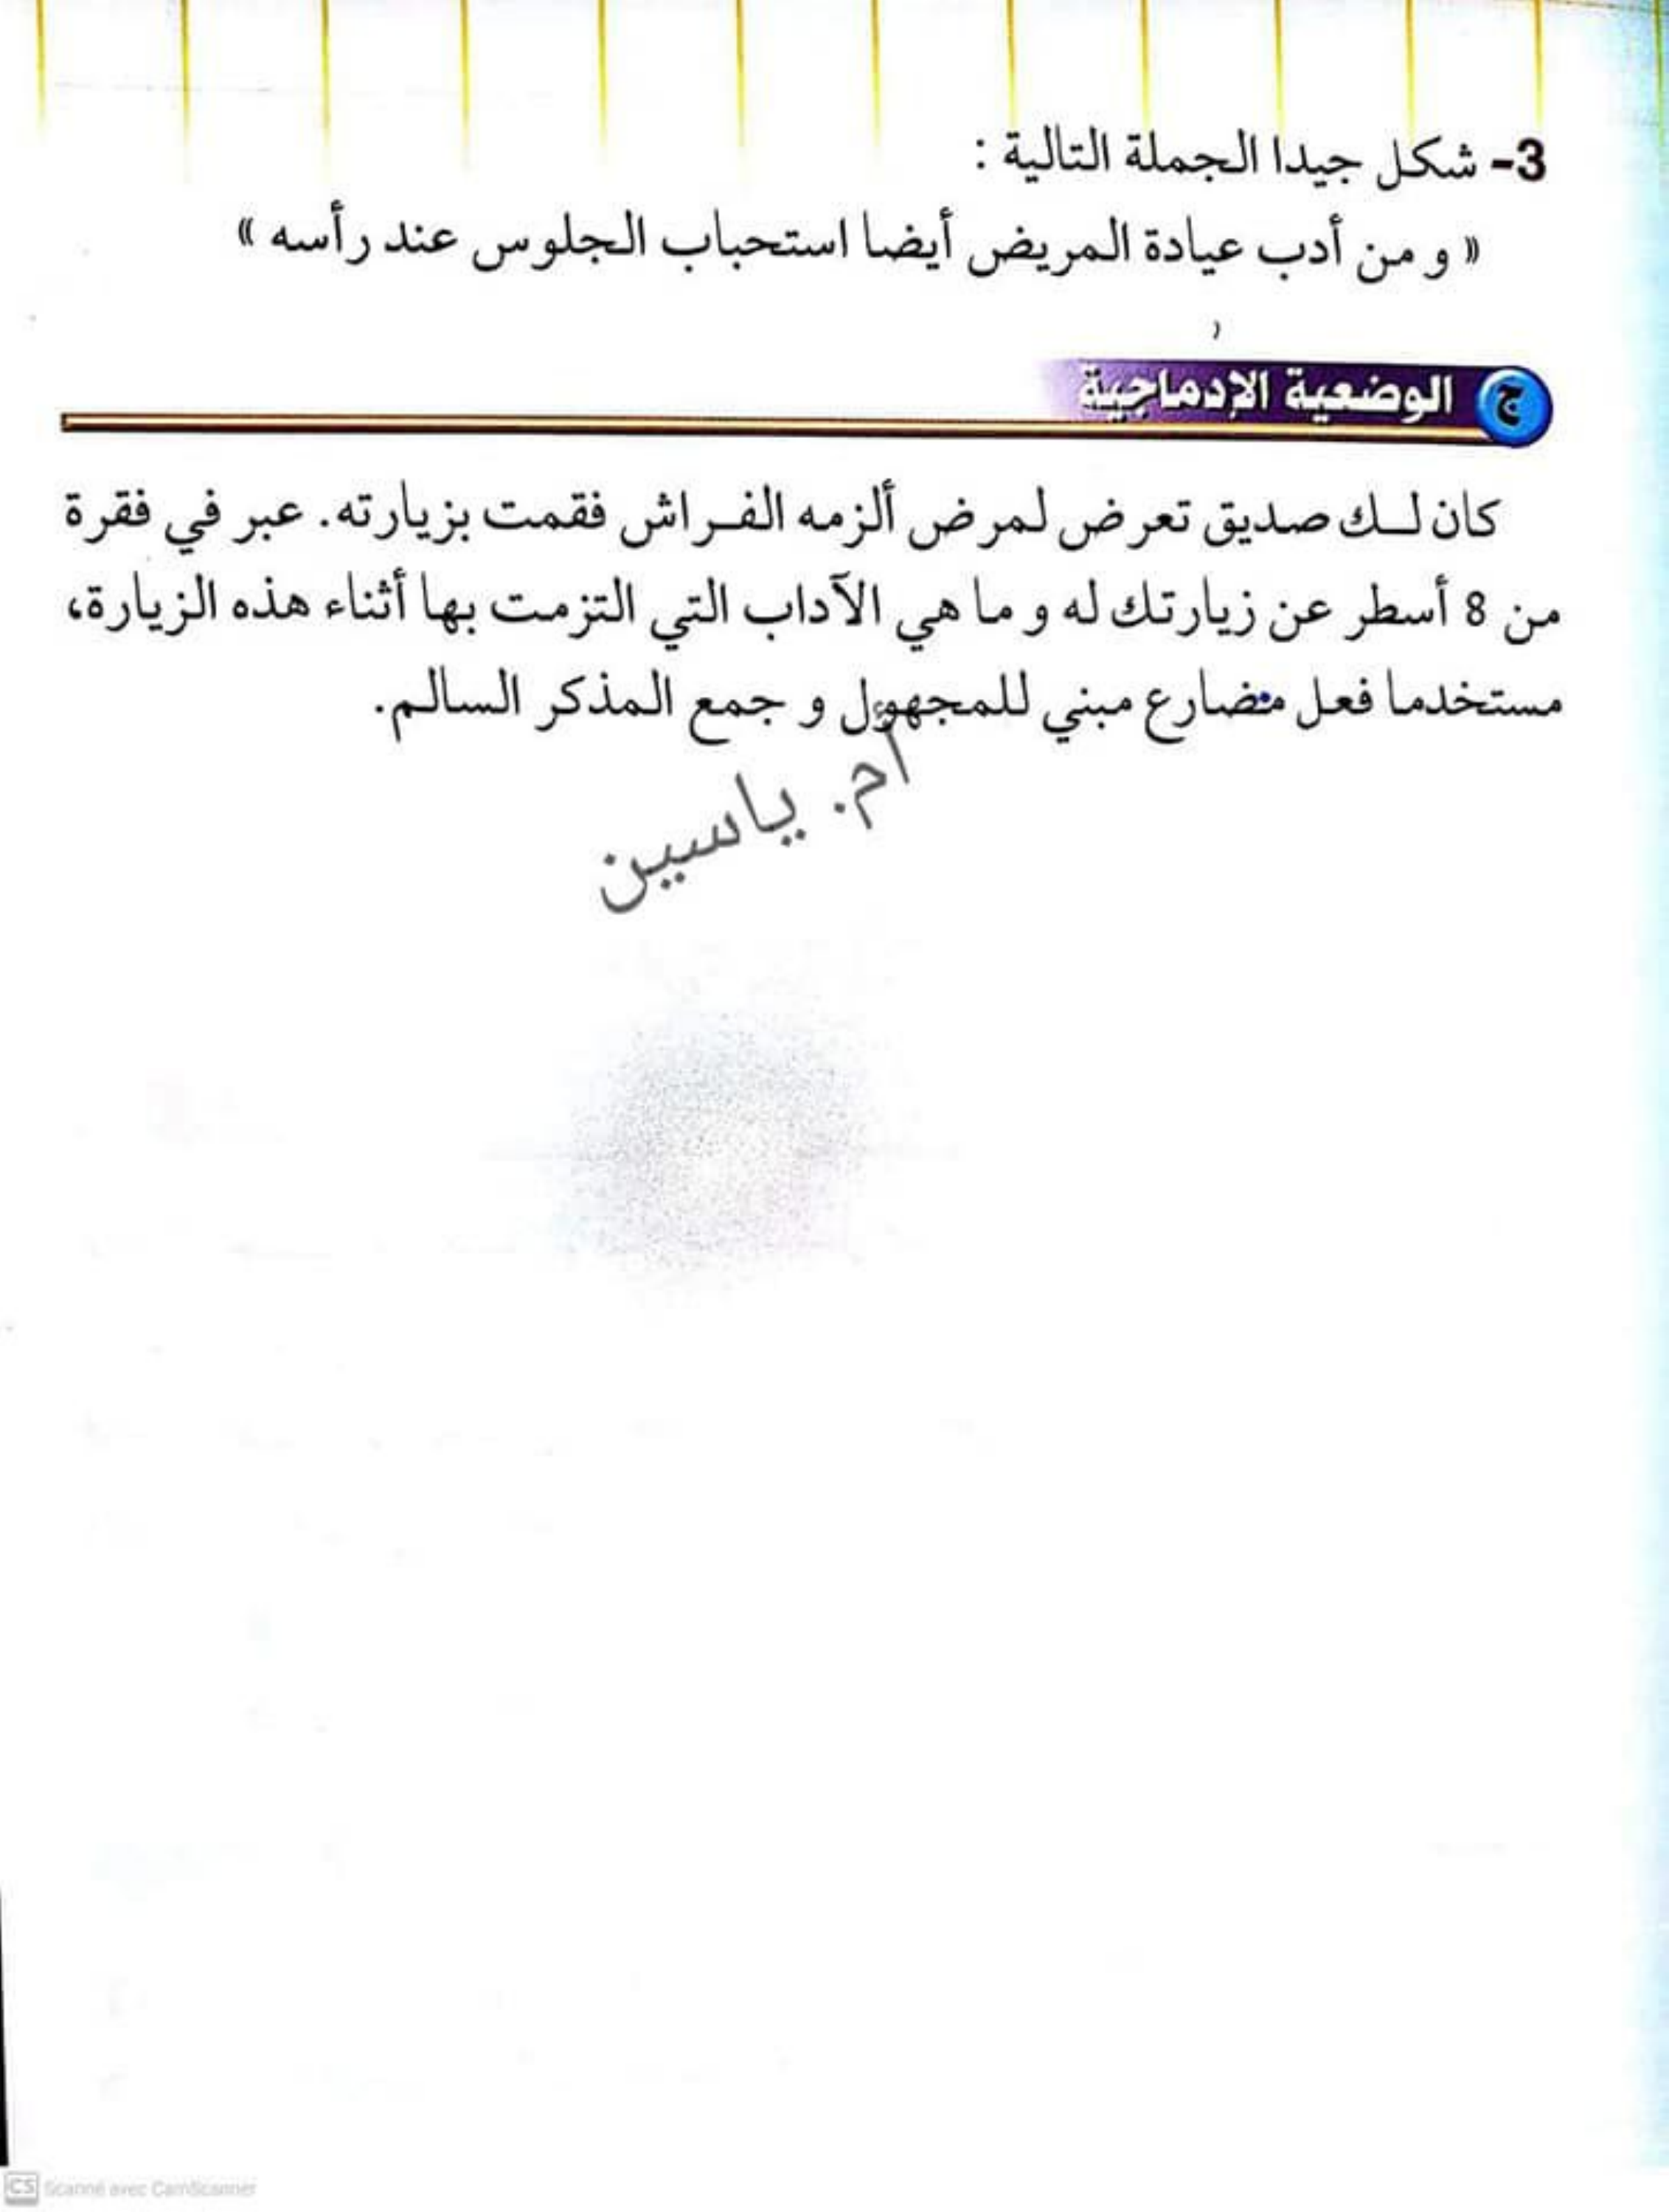 3- شكل جيدا الجملة التالية :
« و من أدب عيادة المريض أيضا استحباب الجلوس عند رأسه »
ج الوضعية الإدماجية
كان لك صديق تعرض لمرض ألزمه الفراش فقمت بزيارته. عبر في فقرة
من 8 أسطر عن زيارتك له و ما هي الآداب التي التزمت بها أثناء هذه الزيارة،
مستخدما فعل مضارع مبني للمجهول و جمع المذكر السالم.
أم. ياسين
CS Scanné avec CamScanner